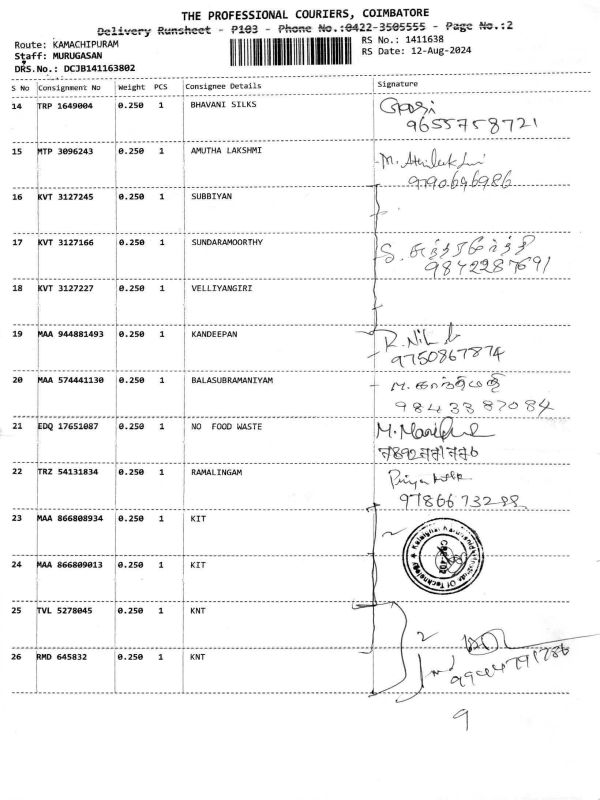 THE PROFESSIONAL COURIERS, COIMBATORE
Delivery Runsheet - P103 - Phone No.:0422-3505555 - Page No.:2
Route: KAMACHIPURAM
RS No.: 1411638
Staff: MURUGASAN
RS Date: 12-Aug-2024
DRS.No.: DCJB141163802
S No Consignment No Weight PCS Consignee Details Signature
14 TRP 1649004 0.250 1 BHAVANI SILKS
9655758721
15 MTP 3096243 0.250 1 AMUTHA LAKSHMI
9790696986
16 KVT 3127245 0.250 1 SUBBIYAN
17 KVT 3127166 0.250 1 SUNDARAMOORTHY
S. சுந்தரமூர்த்தி
9842287691
18 KVT 3127227 0.250 1 VELLIYANGIRI
19 MAA 944881493 0.250 1 KANDEEPAN
9750867874
20 MAA 574441130 0.250 1 BALASUBRAMANIYAM
9843387084
21 EDQ 17651087 0.250 1 NO FOOD WASTE
22 TRZ 54131834 0.250 1 RAMALINGAM
9786673288
23 MAA 866808934 0.250 1 KIT
24 MAA 866809013 0.250 1 KIT
25 TVL 5278045 0.250 1 KNT
2
26 RMD 645832 0.250 1 KNT
9